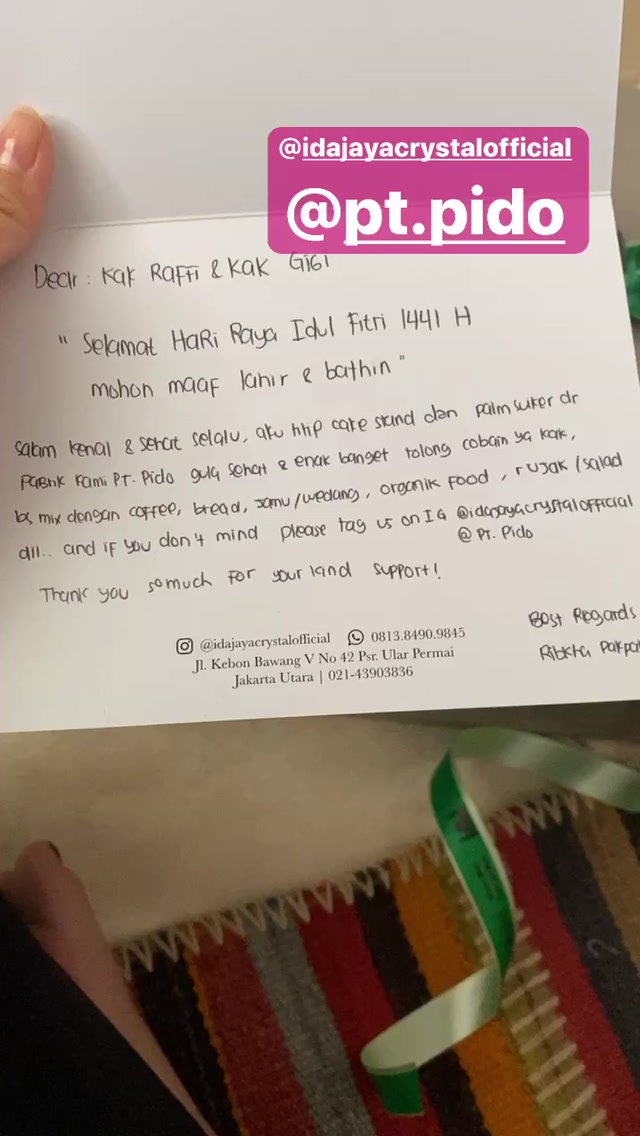 @idajayacrystalofficial
@pt.pido
Dear : Kak Raffi & Kak Gigi
" Selamat Hari Raya Idul Fitri 1441 H
mohon maaf lahir & bathin "
salam kenal & sehat selalu, aku cake stand dan palm suiker dr
pabrik kami PT. Pido gula sehat & enak banget tolong cobain ya kak,
bs mix dengan coffee, bread, jamu/wedang, organik food, rujak/salad
dll.. and if you don't mind please tag us on IG @idajayacrystalofficial
@ PT. Pido
Thank you so much for your kind support!
Best Regards
@idajayacrystalofficial 0813.8490.9845
Jl. Kebon Bawang V No 42 Psr. Ular Permai
Jakarta Utara | 021-43903836